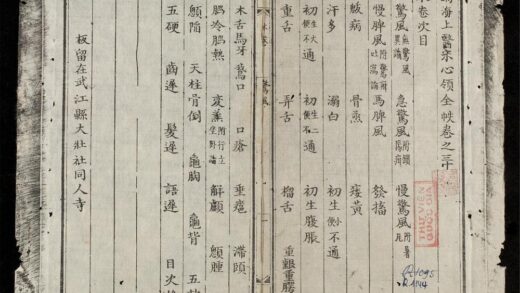 海上醫宗心領全帙卷之
卷次目
驚風 無驚風異論 急驚風 慢驚風
慢脾風 馬脾風 發搐
骨蒸 痿黃
汗多 溺白 初生小便不通
初生大便不通 初生二便不通 初生腹脹
重舌 弄舌 榴舌 重齦重腭
驚風
木舌馬牙鵞口 口瘡 滯頤
附行立坐卧論 解顱 顖腫
顖陷 天柱骨倒 龜胸 龜背
五硬 齒遲 髮遲 語遲 目次
板留在武江縣大壯社同人寺
THƯ VIỆN
QUỐC GIA